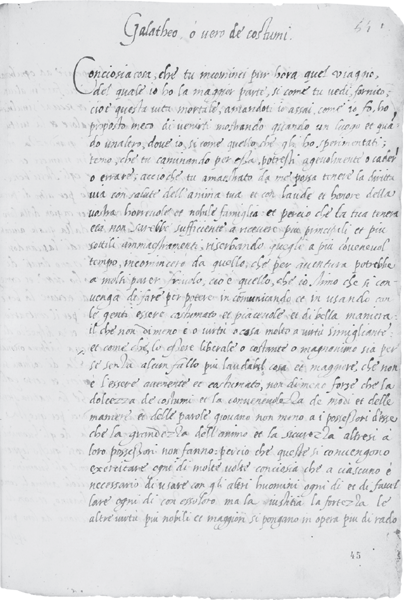 541
Galatheo o vero de costumi.
Conciosia cosa, che tu incominci pur hora quel viaggio,
del quale io ho la maggior parte, si come tu vedi, fornito;
cioè questa vita mortale; amandoti io assai, come io fo, ho
proposto meco di venirti mostrando quando un luogo et qua
do un altro, dove io, si come quello che gli ho sperimentati;
temo, che tu caminando per essa, potresti agevolmente o cader
o errare; accioche tu amaestrato da me possa tenere la diritta
via con salute dell'anima tua et con laude et honore della
vostra honrevole et nobile famiglia et percio che la tua tenera
eta non sarebbe sufficiente à ricevere piu principali et piu
sottili ammaestramenti, riserbandogli à piu convenevol
tempo, incomincero da quello, che per aventura potrebbe
a molti parer frivolo, cio è quello, che io stimo che si con
venga di fare per potere in comunicando et in usando con
le genti essere costumato et piacevole et di bella maniera
il che non di meno è o virtù o cosa molto a virtù simigliante.
et come che lo essere liberale o costante o magnanimo sia per
se senza alcun fallo piu laudabil cosa et maggiore che non
è l'essere avenente et costumato, non dimeno forse che la
dolcezza de costumi et la convenevolezza de modi et delle
maniere et delle parole giovano non meno a i possessori d'esse
che la grandezza dell'animo et la sicurezza altresi à
loro possessori non fanno: percio che queste si convengono
exercitare ogni dì molte volte conciosia che a ciascuno è
necessario di usare con gli altri huomini ogni dì et di favel
lare ogni dì con essoloro. ma la giustitia la fortezza le
altre virtù piu nobili et maggiori si pongono in opera piu di rado
45